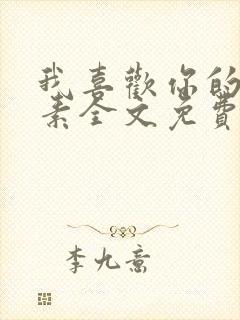 我喜歡你的
素全文免費
李九意